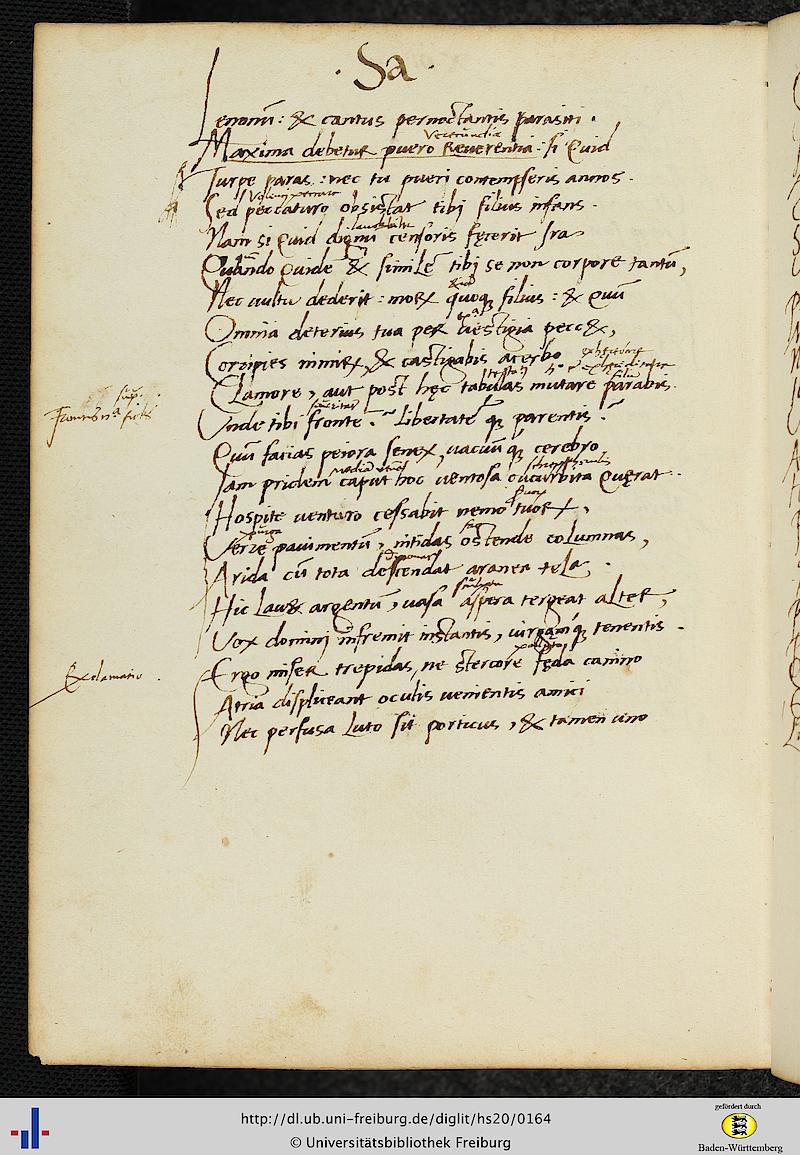 · Sa ·
Lenonũ: & cantus pernoctantis parasiti.
Verecundia
Maxima debetur puero Reverentia: si Quid
Turpe paras: nec tu pueri contempseris annos.
Sed peccaturo obsistat tibi filius infans.
Nam si Quid dignũ censoris fęcerit Ira
Quãndo Quidẽ & similẽ tibi se non corpore tantũ,
Nec uultu dederit: morx quoq filius: & Quũ
Omnia deterius tua per uęstigia pecc&,
Corripies nimirx, & castigabis acerbo
Clamore, aut post hęc tabulas mutare parabis.
Unde tibi frontẽ. Libertatẽ q parentis?
Quũ facias peiora senex, uacuũ q cerebro
Iam pridem caput hoc uentosa cucurbita Quęrat.
Hospite uenturo cessabit nemo tuorx,
purga
Verre pauimentũ, nitidas ostende columnas,
Arida cũ tota descendat aranea tela.
Hic Lau& argentũ, uasa aspera tergeat alter,
Vox domini infremit instantis, uirgamq tenentis.
Exclamatio.
Ergo miser trepidas, ne stercore fęda canino
Atria displiceant oculis uenientis amici
Nec perfusa Luto sit porticus, & tamen uno
http://dl.ub.uni-freiburg.de/diglit/hs20/0164
© Universitätsbibliothek Freiburg
gefördert durch
Baden-Württemberg